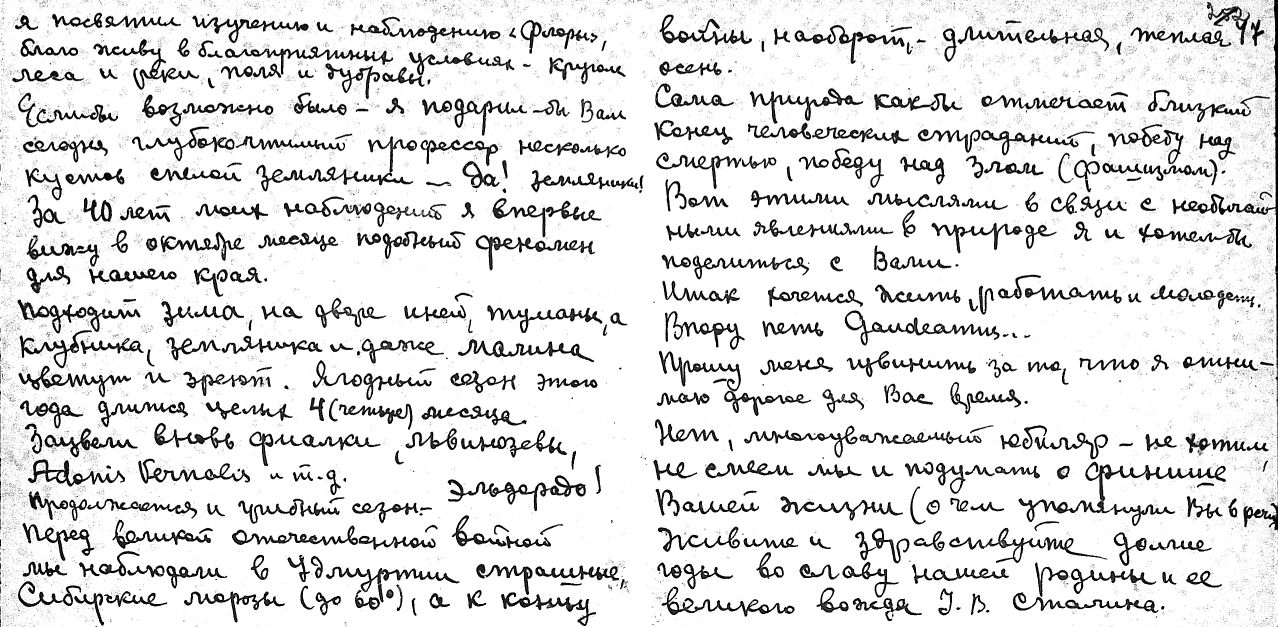 я посвятил изучению и наблюдению «Флоры»,
благо живу в благоприятных условиях – кругом
леса и реки, поля и дубравы.
Еслибы возможно было – я подарил-бы Вам
сегодня глубокочтимый профессор несколько
кустов спелой земляники – Да! земляники!
За 40 лет моих наблюдений я впервые
вижу в октябре месяце подобный феномен
для нашего края.
Подходит зима, на дворе иней, туманы, а
клубника, земляника и даже малина
цветут и зреют. Ягодный сезон этого
года длится целых 4 (четыре) месяца.
Зацвели вновь фиалки, львинозевы,
Adonis Vernalis и т.д.
Эльдорадо!
Продолжается и грибный сезон.–
Перед великой отечественной войной
мы наблюдали в Удмуртии страшные,
Сибирские морозы (до 60°), а к концу
войны, наоборот, – длительная, теплая
осень.
Сама природа как-бы отмечает близкий
конец человеческих страданий, победу над
смертью, победу над злом (фашизмом).
Вот этими мыслями в связи с необычай-
ными явлениями в природе я и хотел-бы
поделиться с Вами.
Итак хочется жить, работать и молодеть.
Впору петь Gaudeamus...
Прошу меня извинить за то, что я отни-
маю дорогое для Вас время.
Нет, многоуважаемый юбиляр – не хотим,
не смеем мы и подумать о финише
Вашей жизни (о чем упомянули Вы в речи)
Живите и здравствуйте долгие
годы во славу нашей родины и ее
великого вождя I. В. Сталина.